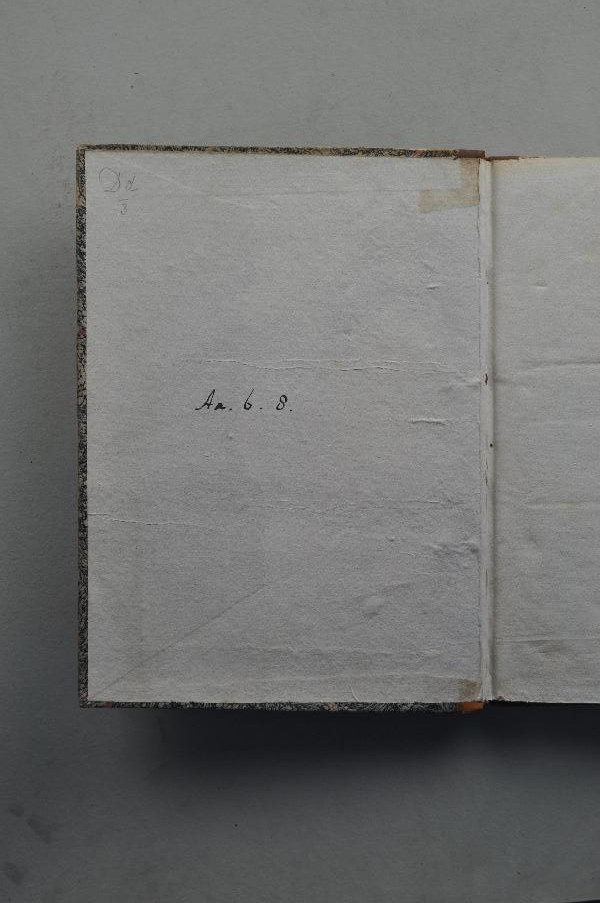 Dd
3
Aa. 6. 8.